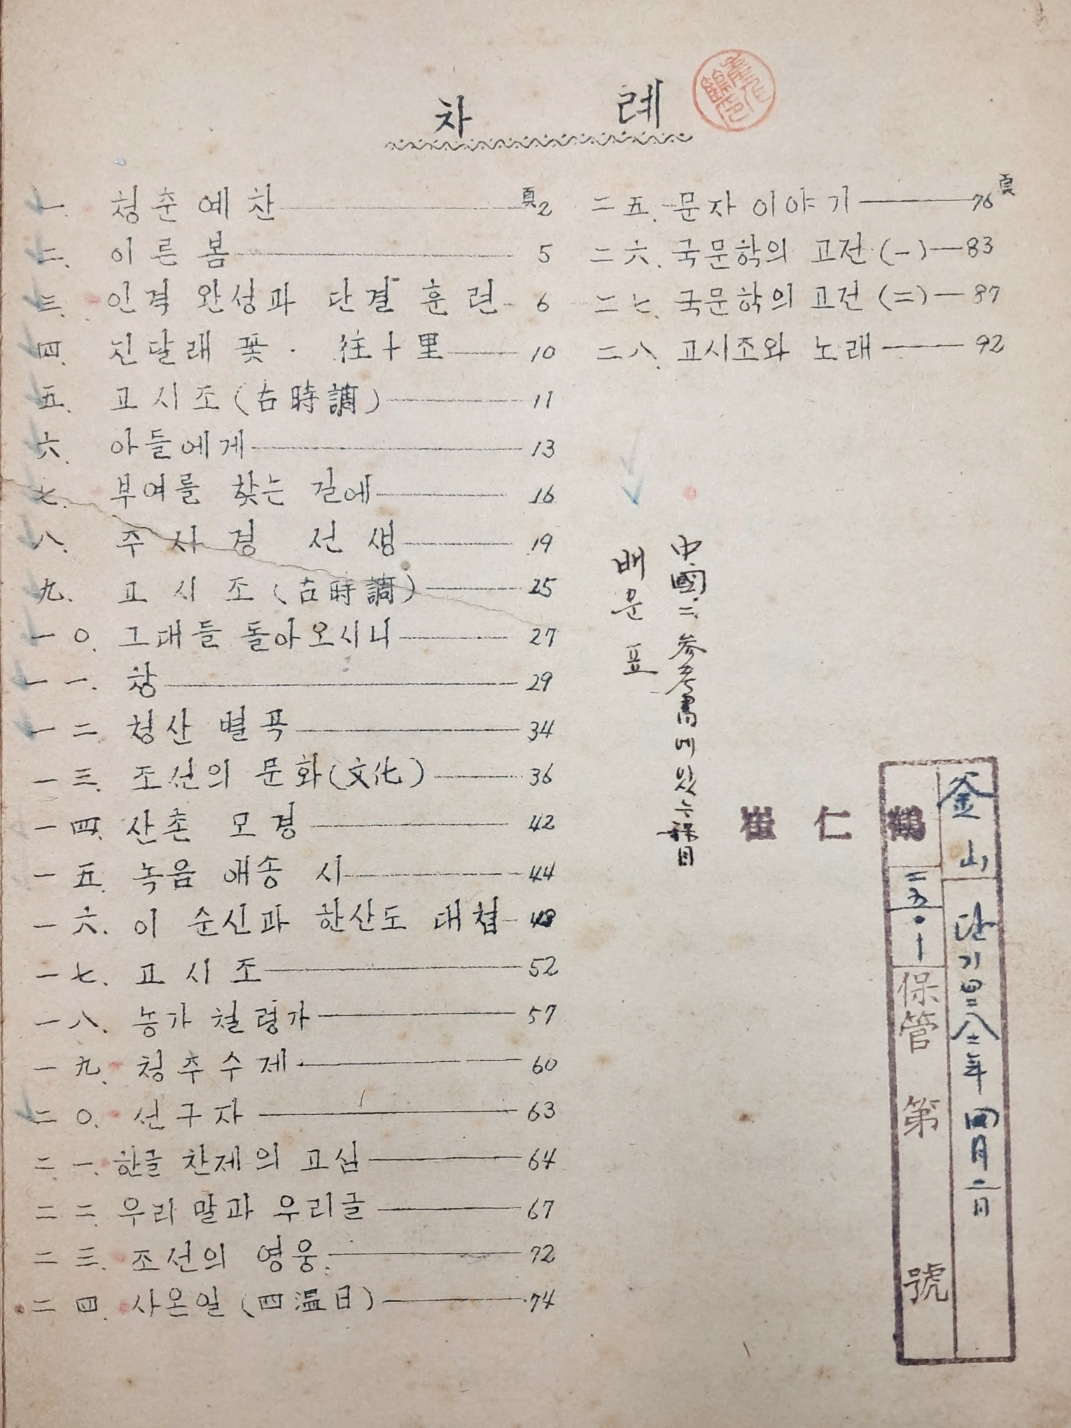 차 례
一. 청춘예찬 頁2
二. 이른 봄 5
三. 인격 완성과 단결 훈련 6
四. 진달래 꽃 · 往十里 10
五. 고시조(古時調) 11
六. 아들에게 13
七. 부여를 찾는 길에 16
八. 주시경 선생 19
九. 고시조(古時調) 25
一〇. 그대들 돌아오시니 27
一一. 창 29
一二 청산 별곡 34
一三. 조선의 문화(文化) 36
一四. 산촌 모경 42
一五. 녹음 애송 시 44
一六. 이 순신과 한산도 대첩 48
一七. 고시조 52
一八. 농가 월령가 57
一九. 청추수제 60
二〇. 선구자 63
二一. 한글 창제의 고심 64
二二. 우리 말과 우리글 67
二三. 조선의 영웅 72
二四. 사온일(四温日) 74
二五. 문자 이야기 76頁
二六. 국문학의 고전(一) 83
二七. 국문학의 고전(二) 87
二八. 고시조와 노래 92
中國二 参考書에 있는 科目
배운 표
崔仁鶴
釜山
단기四二八二年 四月二日
二五〇一
保管 第 號